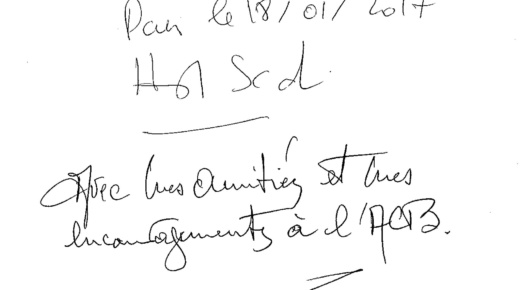 le 18/01/2017
Avec mes amitiés et mes
encouragements à l'ACB.